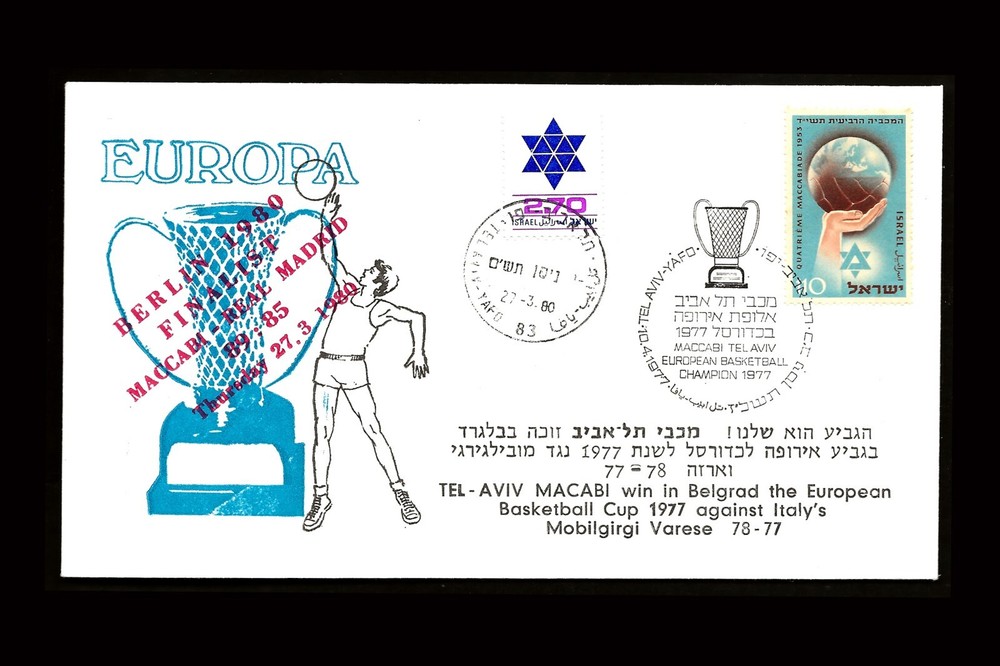 EUROPA
BERLIN 1980
FINALIST
MACCABI - REAL MADRID
89/85
Thursday 27.3.1980
2.70
ISRAEL اسرائيل ישראל
TEL AVIV-YAFO
תש"ם ניסן
27-3.80
83
המכביה הרביעית תשי"ד
QUATRIEME MACCABIADE 1953
ISRAEL اسرائيل
10 ישראל
TEL AVIV-YAFO
תל-אביב-יפו
10.4.1977
תל ابيب - يافا
מכבי תל אביב
אלופת אירופה
בכדורסל 1977
MACCABI TEL AVIV
EUROPEAN BASKETBALL
CHAMPION 1977
הגביע הוא שלנו! מכבי תל־אביב זוכה בבלגרד
בגביע אירופה לכדורסל לשנת 1977 נגד מובילגירגי
וארזה 78=77
TEL-AVIV MACABI win in Belgrad the European
Basketball Cup 1977 against Italy's
Mobilgirgi Varese 78-77